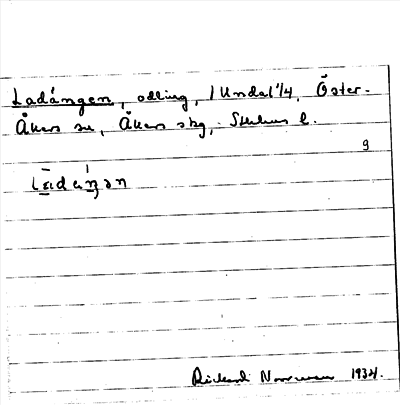 Ladängen, odling, 1 Undal 1/4, Öster-
Åkers sn, Åkers skg, Sthlms l.
9
Rickard Norrman 1934.